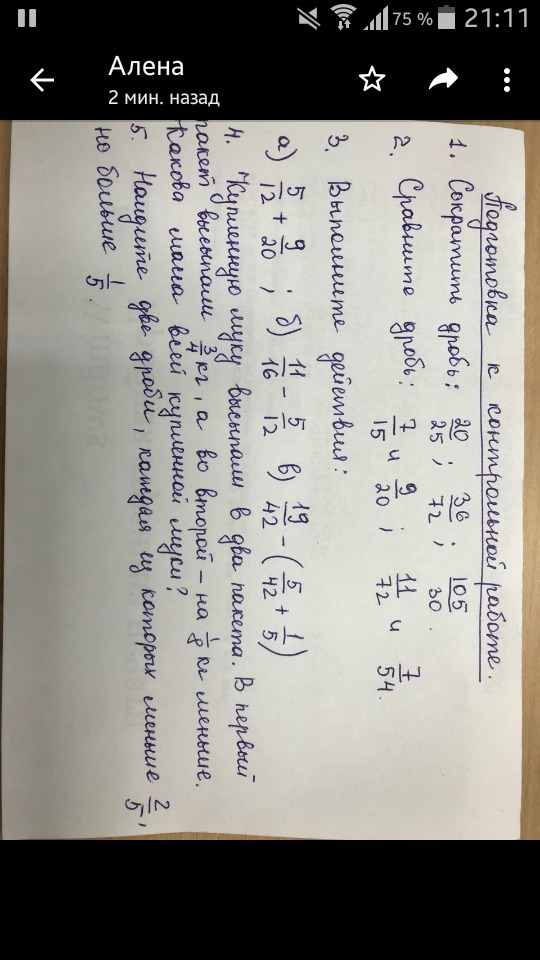 75 %
21:11
Алена
2 мин. назад
Подготовка к контрольной работе.
1. Сократить дробь: 20/25; 36/72; 105/30.
2. Сравните дробь: 7/15 и 9/20; 11/72 и 7/54.
3. Выполните действия:
а) 5/12 + 9/20; б) 11/16 - 5/12 в) 19/42 - (5/42 + 1/5)
4. Купленную муку высыпали в два пакета. В первый
пакет высыпали 3/4 кг, а во второй - на 1/8 кг меньше.
Какова масса всей купленной муки?
5. Найдите две дроби, каждая из которых меньше 2/5,
но больше 1/5.